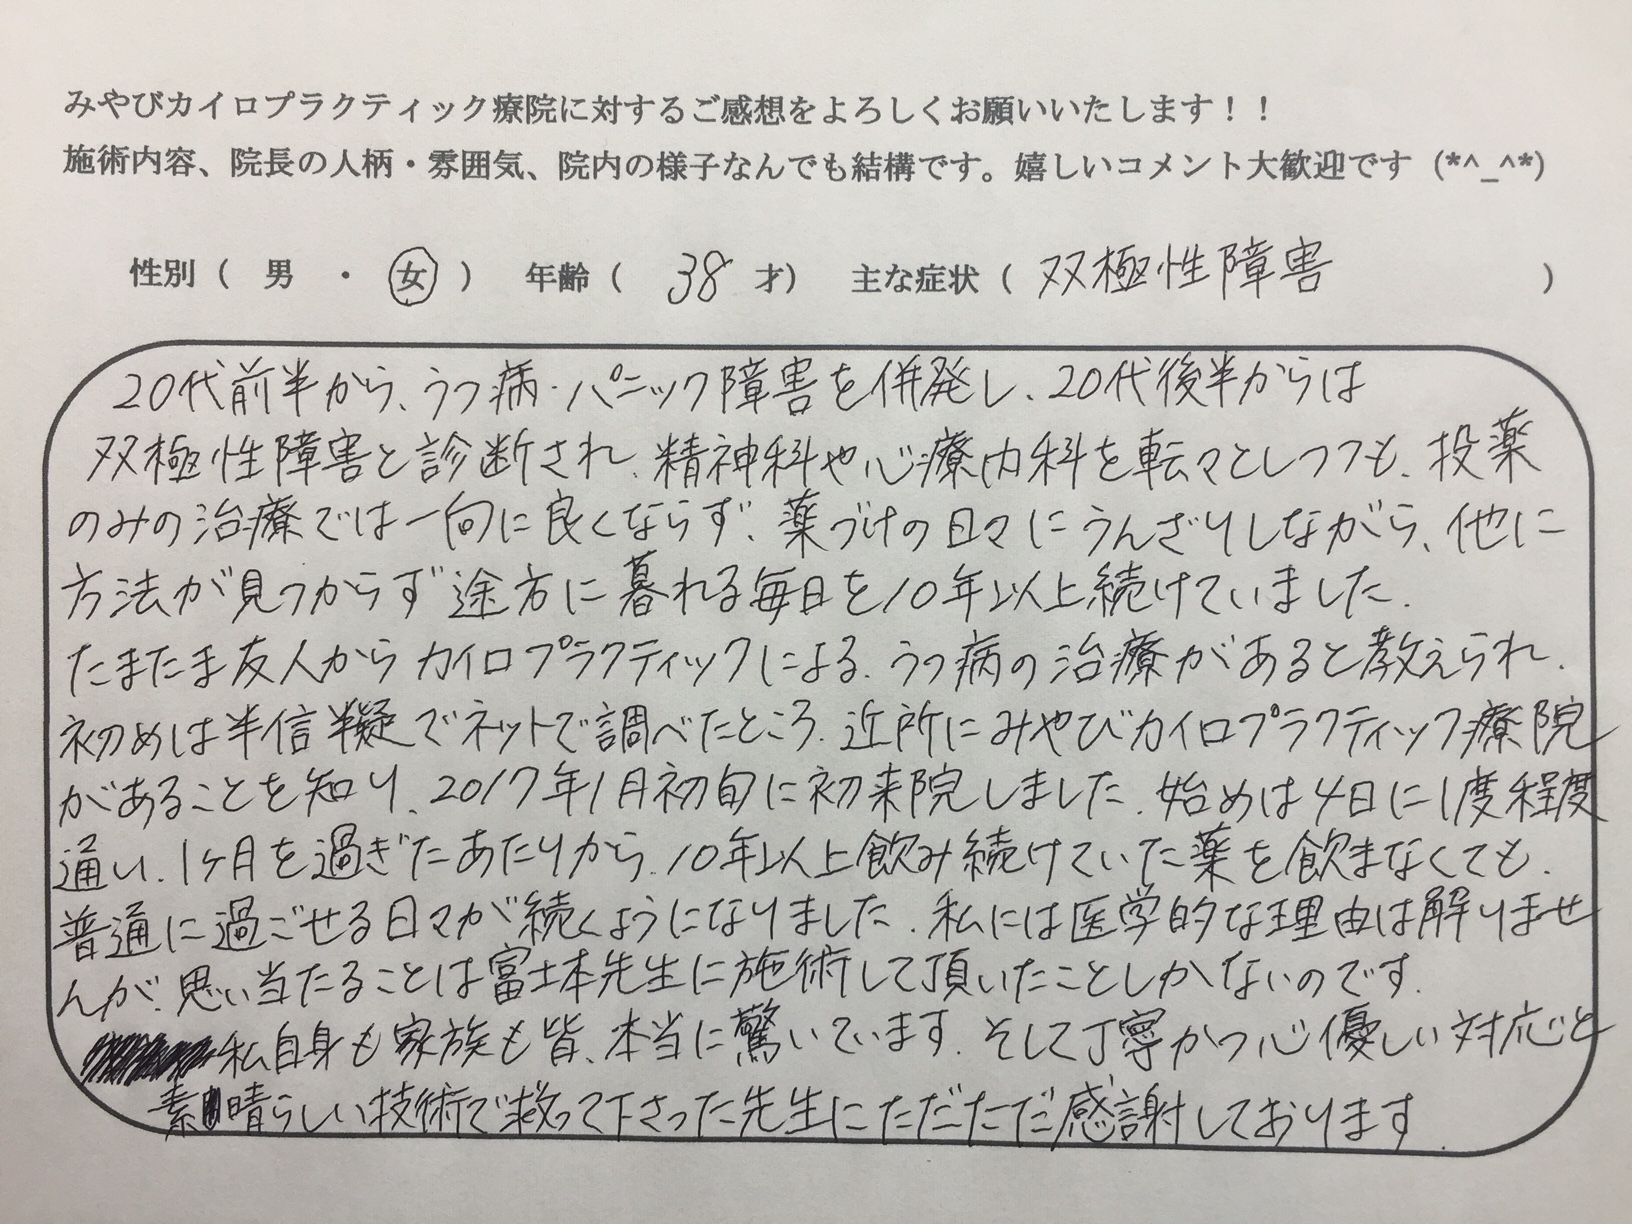 みやびカイロプラクティック療院に対するご感想をよろしくお願いいたします！！
施術内容、院長の人柄・雰囲気、院内の様子なんでも結構です。嬉しいコメント大歓迎です (*^_^*)
性別（ 男 ・ 女 ） 年齢（ 38 才） 主な症状（ 双極性障害 ）
20代前半から、うつ病・パニック障害を併発し、20代後半からは
双極性障害と診断され、精神科や心療内科を転々としつつも、投薬
のみの治療では一向に良くならず、薬づけの日々にうんざりしながら、他に
方法が見つからず途方に暮れる毎日を10年以上続けていました。
たまたま友人からカイロプラクティックによる、うつ病の治療があると教えられ、
初めは半信半疑でネットで調べたところ、近所にみやびカイロプラクティック療院
があることを知り、2017年1月初旬に初来院しました。始めは4日に1度程度
通い、1ヶ月を過ぎたあたりから、10年以上飲み続けていた薬を飲まなくても、
普通に過ごせる日々が続くようになりました。私には医学的な理由は解りませ
んが、思い当たることは富士本先生に施術して頂いたことしかないのです。
私自身も家族も皆、本当に驚いています。そして丁寧かつ心優しい対応と
素晴らしい技術で救って下さった先生にただただ感謝しております。